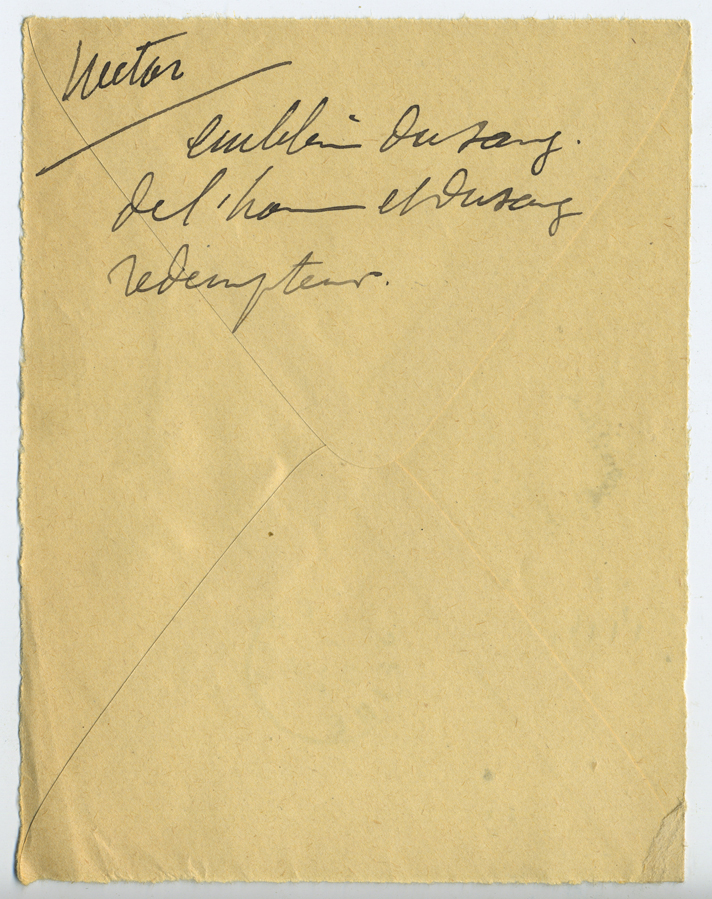 emblème du sang.
de l'homme et du sang
rédempteur.